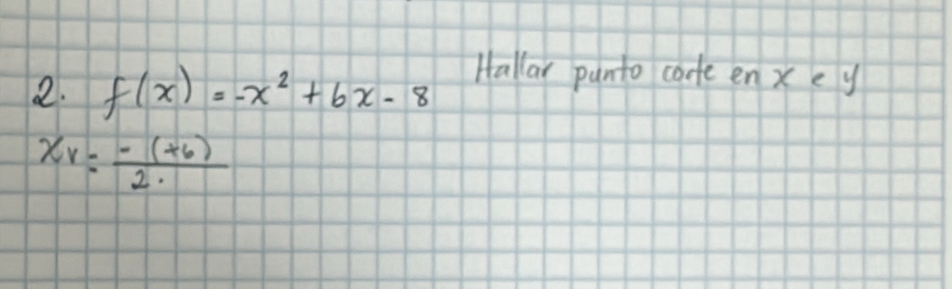 2. f(x) = -x² + 6x - 8 Hallar punto corte en x e y
xv = -(+6) / 2.